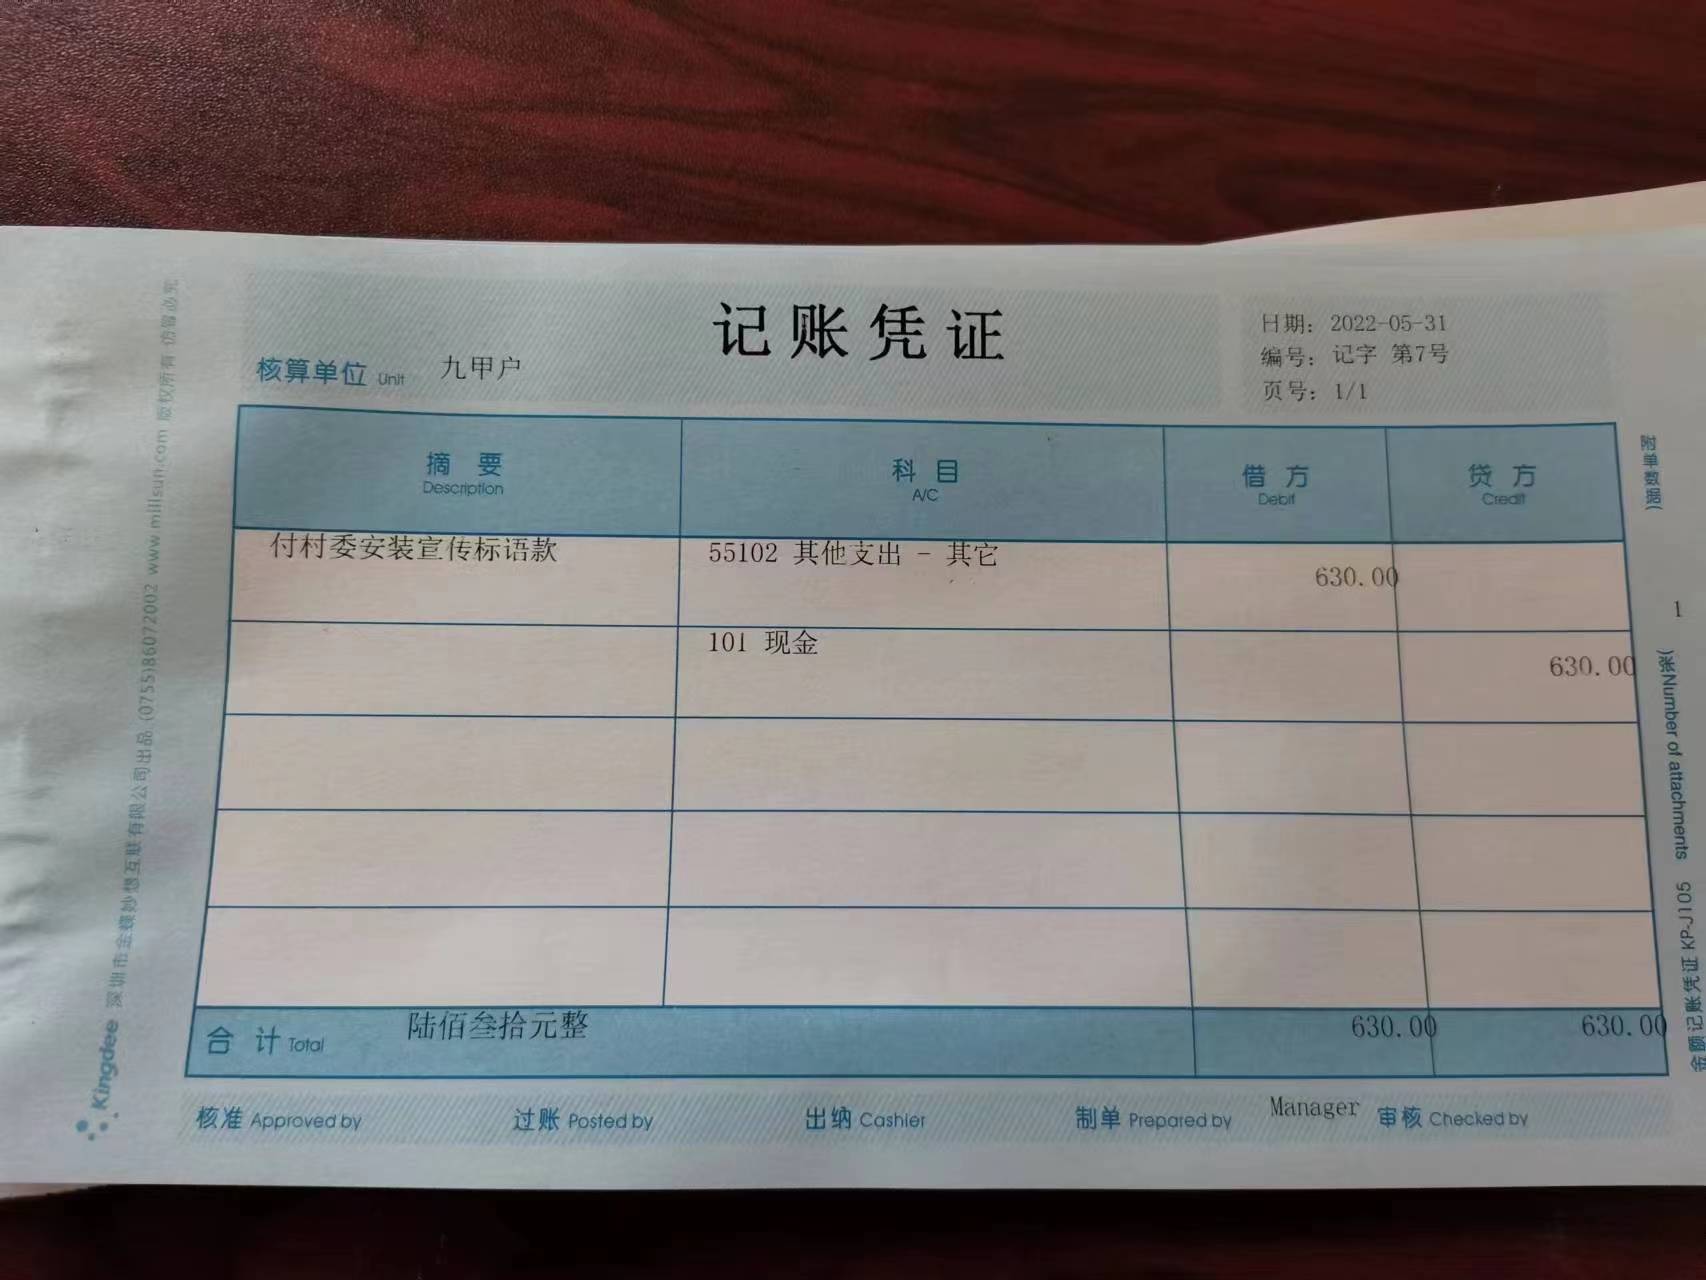 记账凭证
核算单位 Unit 九甲户
日期: 2022-05-31
编号: 记字 第7号
页号: 1/1
摘要 科目 借方 贷方
Description A/C Debit Credit
付村委安装宣传标语款 55102 其他支出 - 其它 630.00
101 现金 630.00
合计 Total 陆佰叁拾元整 630.00 630.00
核准 Approved by 过账 Posted by 出纳 Cashier 制单 Prepared by Manager 审核 Checked by
附单数据( 1 )张Number of attachments 金额记账凭证 KP-J105
Kingdee 深圳市金蝶妙想互联有限公司出品 (0755)86072002 www.millsun.com 版权所有 仿冒必究